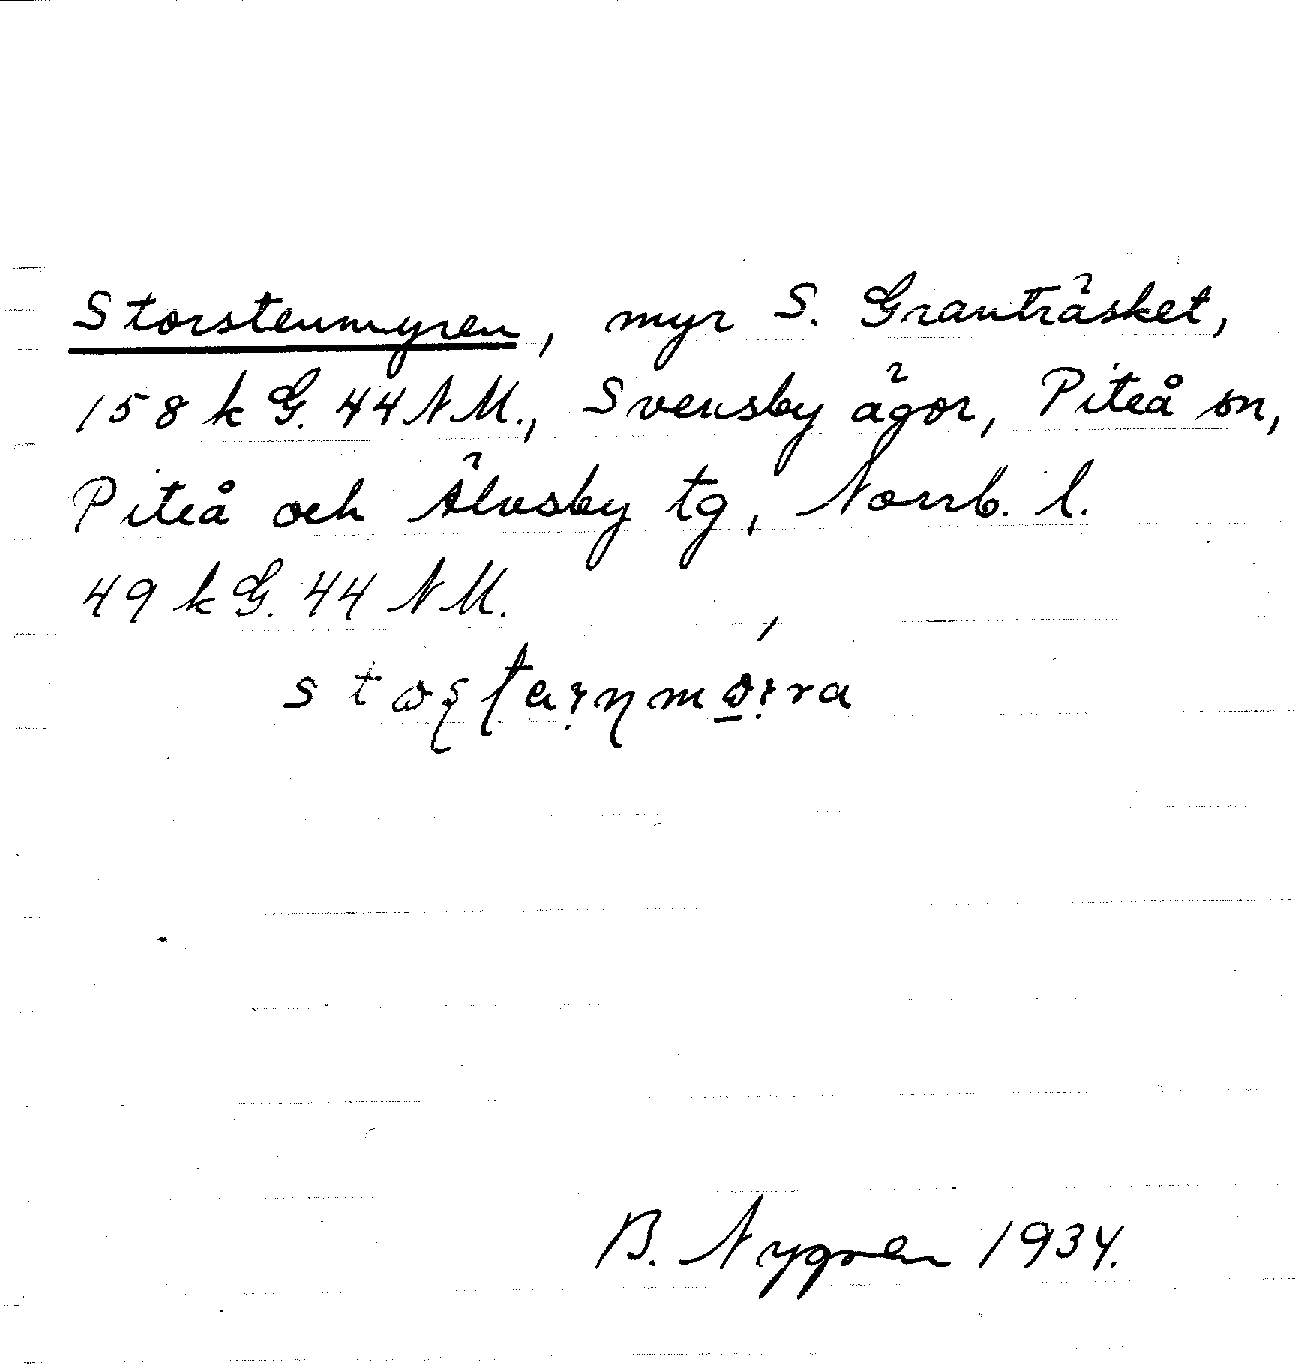 Storstenmyren, myr S. Granträsket,
158 k G. 44 N M., Svensby ägor, Piteå sn,
Piteå och Älvsby tg, Norrb. l.
49 k G. 44 N M.
B. Nygren 1934.